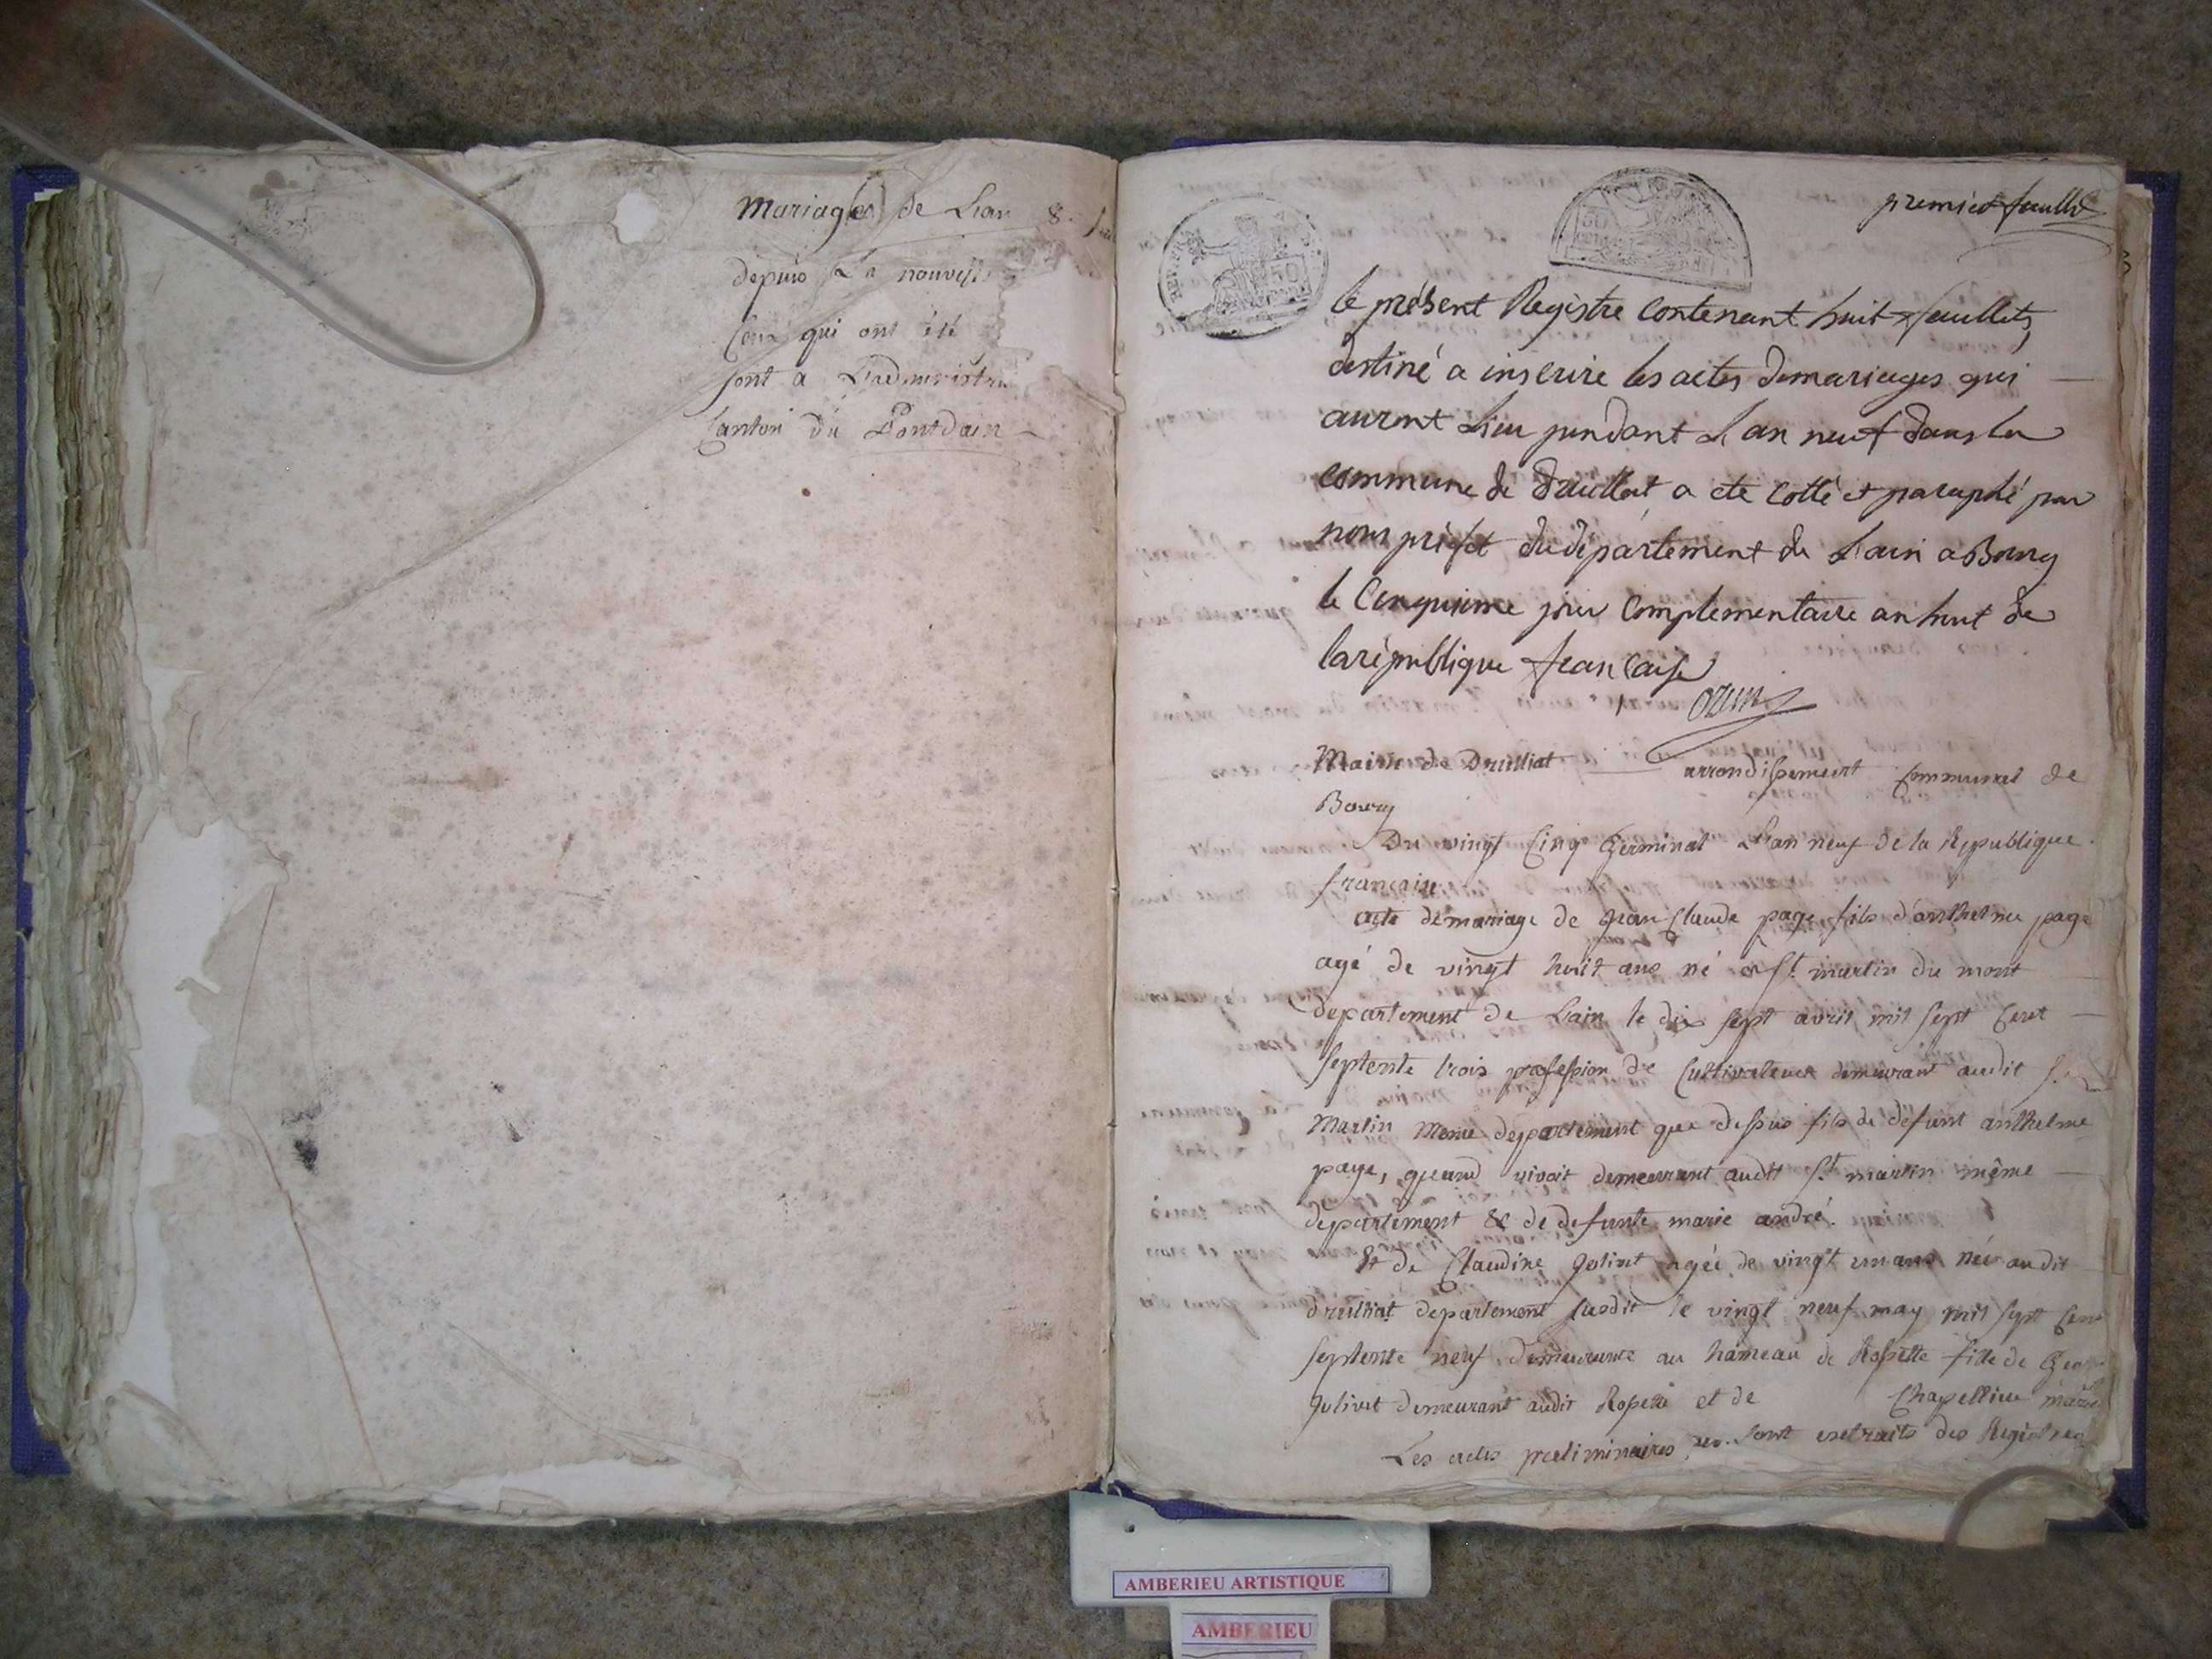 Mariages de Lan 8.
depuis La nouvelle
Ceux qui ont été
sont a L'administra
Canton du Pontdain
premier feuillet
le présent Registre contenant huit feuillets
destiné a inscrire les actes de mariages qui
auront Lieu pendant L'an neuf dans la
commune de druillat, a ete cotté et paraphé par
nous préfet du département de L'ain a Bourg
le Cinquieme jour complementaire an huit de
la république francaise
Mairie de Druilliat arrondissement communal de
Bourg
Du vingt Cinq Germinal L'an neuf de la Republique
francaise
acte de mariage de jean Claude page fils d'anthelme page
agé de vingt huit ans né a St. martin du mont
département de Lain le dix sept avril mil sept Cent
septente trois profession de Cultivateur demeurant audit
Martin meme departement que dessus fils de defunt anthelme
page, quand vivoit demeurant audit St. martin même
departement & de defunte marie andré.
Et de Claudine jolivet agée de vingt un ans née audit
druilliat departement susdit le vingt neuf may mil sept Cent
septente neuf demeurante au hameau de Rossette fille de
jolivet demeurant audit Rossette et de Chapellier
Les actes preliminaires sont extraits des Registres
AMBERIEU ARTISTIQUE
AMBERIEU